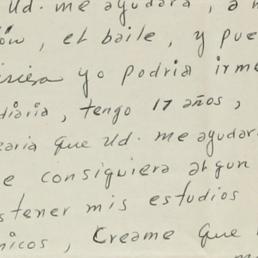 Ud. me ayudara, a
ón, el baile, y pue
isiera yo podria irme
diaria, tengo 17 años,
earia que Ud. me ayudar
e consiguiera algun
stener mis estudios
nicos, Creame que